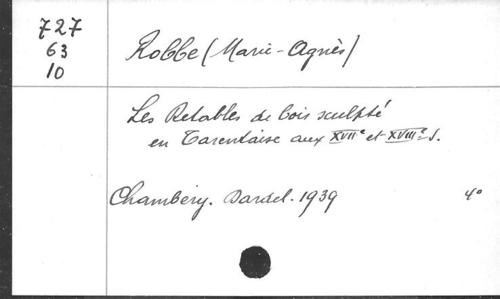 727
63
10
Robbe (Marie-Agnès)
Les Retables de bois sculpté
en Tarentaise aux XVIIe et XVIIIe s.
Chambéry. Dardel. 1939 4°